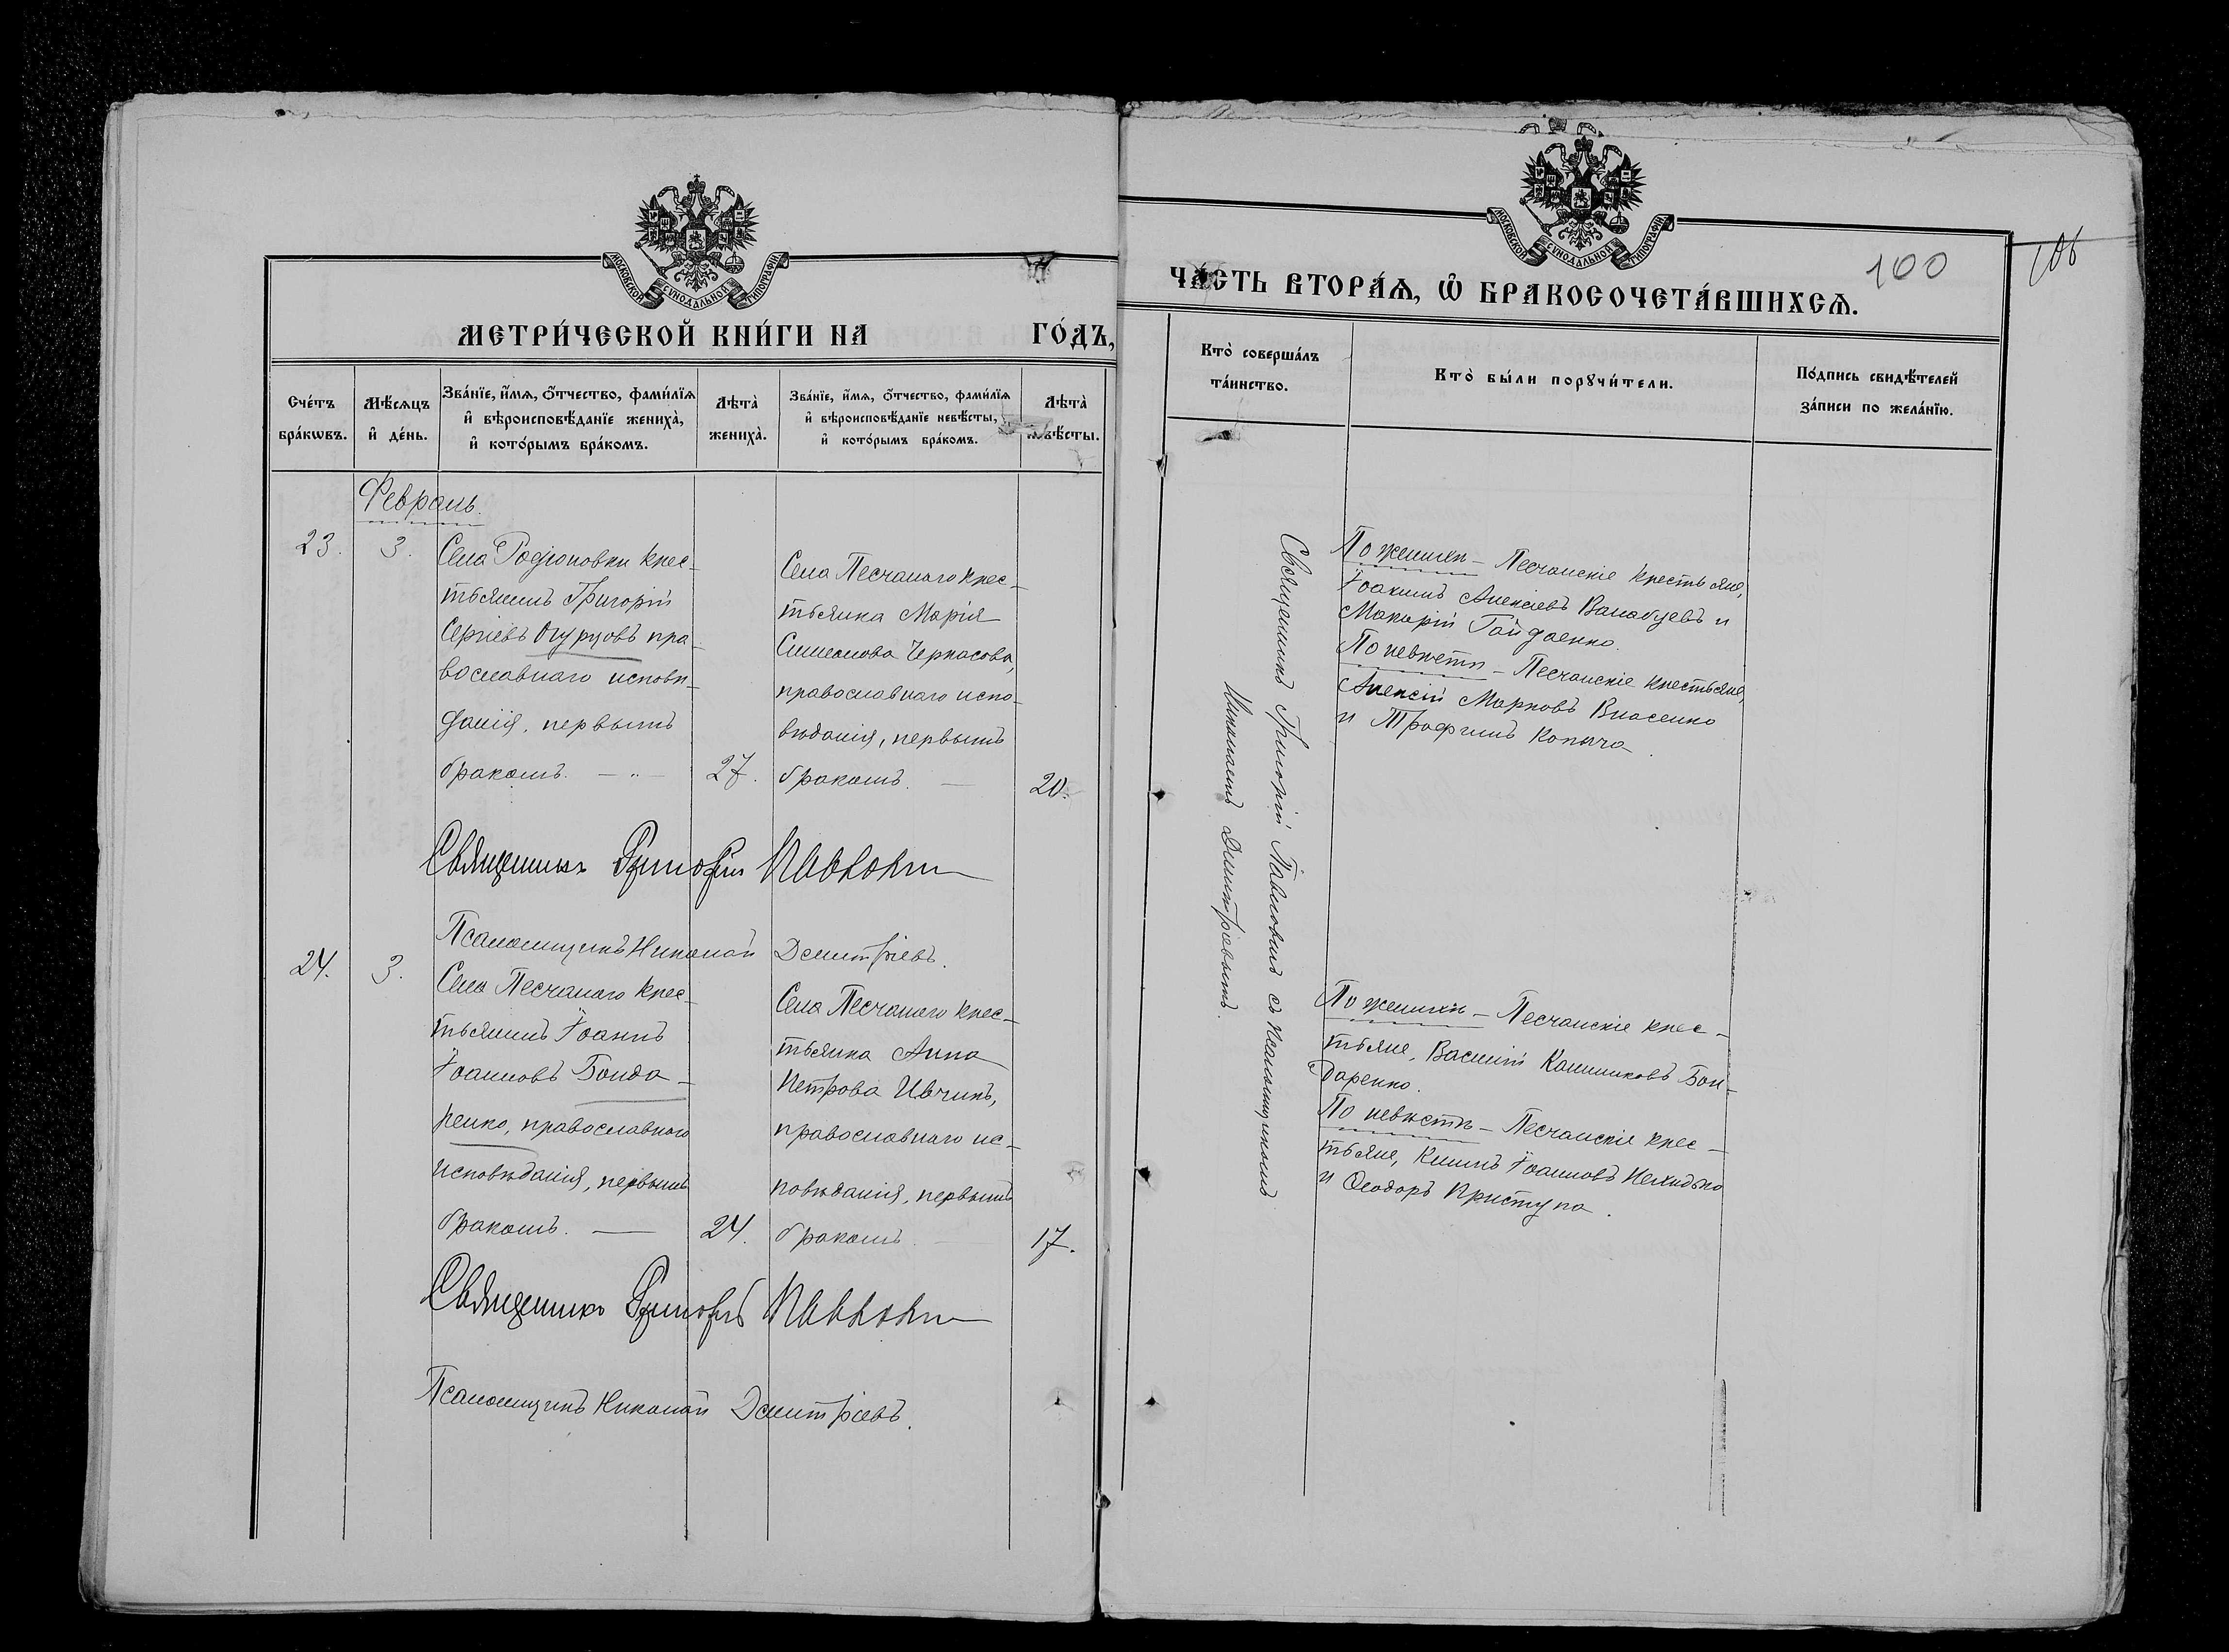 МОСКОВСКОЙ СѴНОДАЛЬНОЙ ТИПОГРАФІИ
МЕТРИ́ЧЕСКОЙ КНИ́ГИ НА ГО́ДЪ,
Сче́тъ бра́кѡвъ.
Мѣ́сяцъ и де́нь.
Зва́нїе, и́мѧ, ѻ҆́тчество, фами́лїѧ
и҆ вѣроисповѣ́данїе жениха̀,
и҆ кото́рымъ бра́комъ.
Лѣта̀ жениха̀.
Зва́нїе, и́мѧ, ѻ҆́тчество, фами́лїѧ
и҆ вѣроисповѣ́данїе невѣ́сты,
и҆ кото́рымъ бра́комъ.
Лѣта̀ невѣ́сты.
Февраль.
23.
3.
Села Родіоновки крес-
тьянинъ Григорій
Сергіевъ Огурцовъ пра-
вославнаго исповѣ-
данія, первымъ
бракомъ. — „ —
27.
Села Песчанаго крес-
тьянка Марія
Симеонова Черкасова,
православнаго испо-
вѣданія, первымъ
бракомъ. —
20.
Священникъ Григорій Павловъ
Псаломщикъ Николай Димитріевъ.
24.
3.
Села Песчанаго крес-
тьянинъ Іоаннъ
Іоанновъ Бонда-
ренко, православнаго
исповѣданія, первымъ
бракомъ. —
24.
Села Песчанаго крес-
тьянка Анна
Петрова Ивчинъ,
православнаго ис-
повѣданія, первымъ
бракомъ. —
17.
Священникъ Григорій Павловъ
Псаломщикъ Николай Димитріевъ.
МОСКОВСКОЙ СѴНОДАЛЬНОЙ ТИПОГРАФІИ
100
106
ЧА́СТЬ ВТОРА́Ѧ, Ѡ҆ БРАКОСОЧЕТА́ВШИХСѦ.
Кто̀ соверша́лъ
та́инство.
Кто̀ бы́ли порꙋчи́тели.
По́дпись свидѣ́телей
за́писи по жела́нїю.
Священникъ Григорій Павловъ съ псаломщикомъ
Николаемъ Димитріевымъ.
По женихѣ — Песчанскіе крестьяне,
Іоакимъ Алексіевъ и
Макарій Гайдаенко.
По невѣстѣ — Песчанскіе крестьяне,
Алексій Марковъ Власенко
и Трофимъ Копыча.
По женихѣ — Песчанскіе крес-
тьяне, Василій Калинниковъ Бон-
даренко.
По невѣстѣ — Песчанскіе крес-
тьяне, Климъ Іоанновъ
и Ѳеодоръ Криступа.